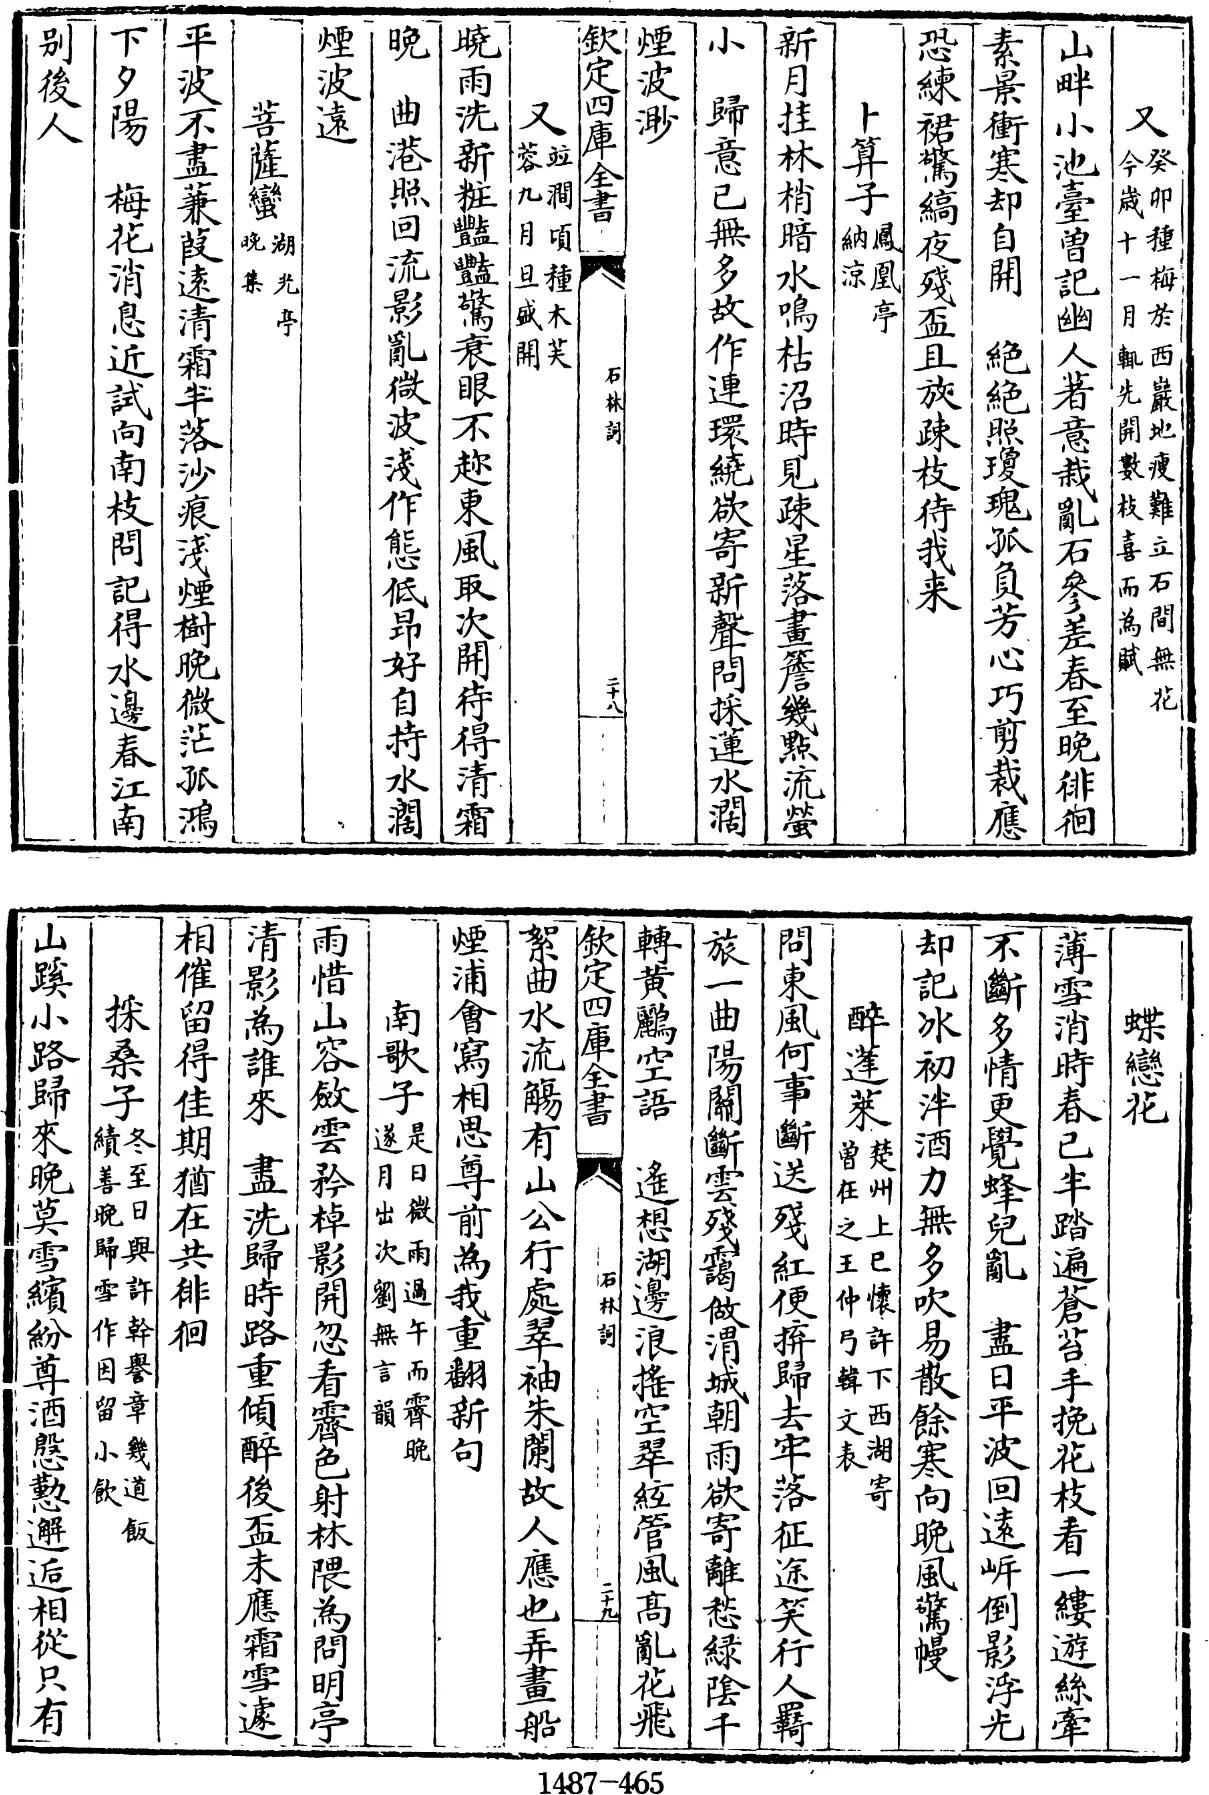 又癸卯種梅於西巖地瘦難立石間無花
今歲十一月輒先開數枝喜而為賦
山畔小池臺曾記幽人著意栽亂石參差春至晚徘徊
素景衝寒却自開　絶絶照瓊瑰孤負芳心巧剪裁應
恐練裙驚縞夜殘盃且放疎枝待我来
卜算子鳳凰亭
納涼
新月挂林梢暗水鳴枯沼時見疎星落畫簷幾點流螢
小　歸意已無多故作連環繞欲寄新聲問採蓮水濶
煙波渺
欽定四庫全書
石林詞
二十八
又竝澗頃種木芙
蓉九月旦盛開
曉雨洗新粧豔豔驚衰眼不趂東風取次開待得清霜
晩　曲港照回流影亂微波淺作態低昂好自持水濶
煙波遠
菩薩蠻湖光亭
晚集
平波不盡蒹葭遠清霜半落沙痕淺煙樹晚微茫孤鴻
下夕陽　梅花消息近試向南枝問記得水邊春江南
别後人
蝶戀花
薄雪消時春已半踏遍蒼苔手挽花枝看一縷遊絲牽
不斷多情更覺蜂兒亂　盡日平波回遠岸倒影浮光
却記冰初泮酒力無多吹易散餘寒向晚風驚幔
醉蓬萊楚州上巳懷許下西湖寄
曾存之王仲弓韓文表
問東風何事斷送殘紅便拚歸去牢落征途笑行人羇
旅一曲陽關斷雲殘靄做渭城朝雨欲寄離愁緑陰千
轉黄鸝空語　遙想湖邊浪搖空翠絃管風髙亂花飛
欽定四庫全書
石林詞
二十九
絮曲水流觴有山公行處翠袖朱闌故人應也弄畫船
煙浦會寫相思尊前為我重翻新句
南歌子是日微雨過午而霽晚
遂月出次劉無言韻
雨惜山容斂雲矜棹影開忽看霽色射林隈為問明亭
清影為誰來　盡洗歸時路重傾醉後盃未應霜雪遽
相催留得佳期猶在共徘徊
採桑子冬至日與許幹譽章幾道飯
績善晚歸雪作因留小飲
山蹊小路歸來晚莫雪繽紛尊酒慇懃邂逅相從只有
1487-465